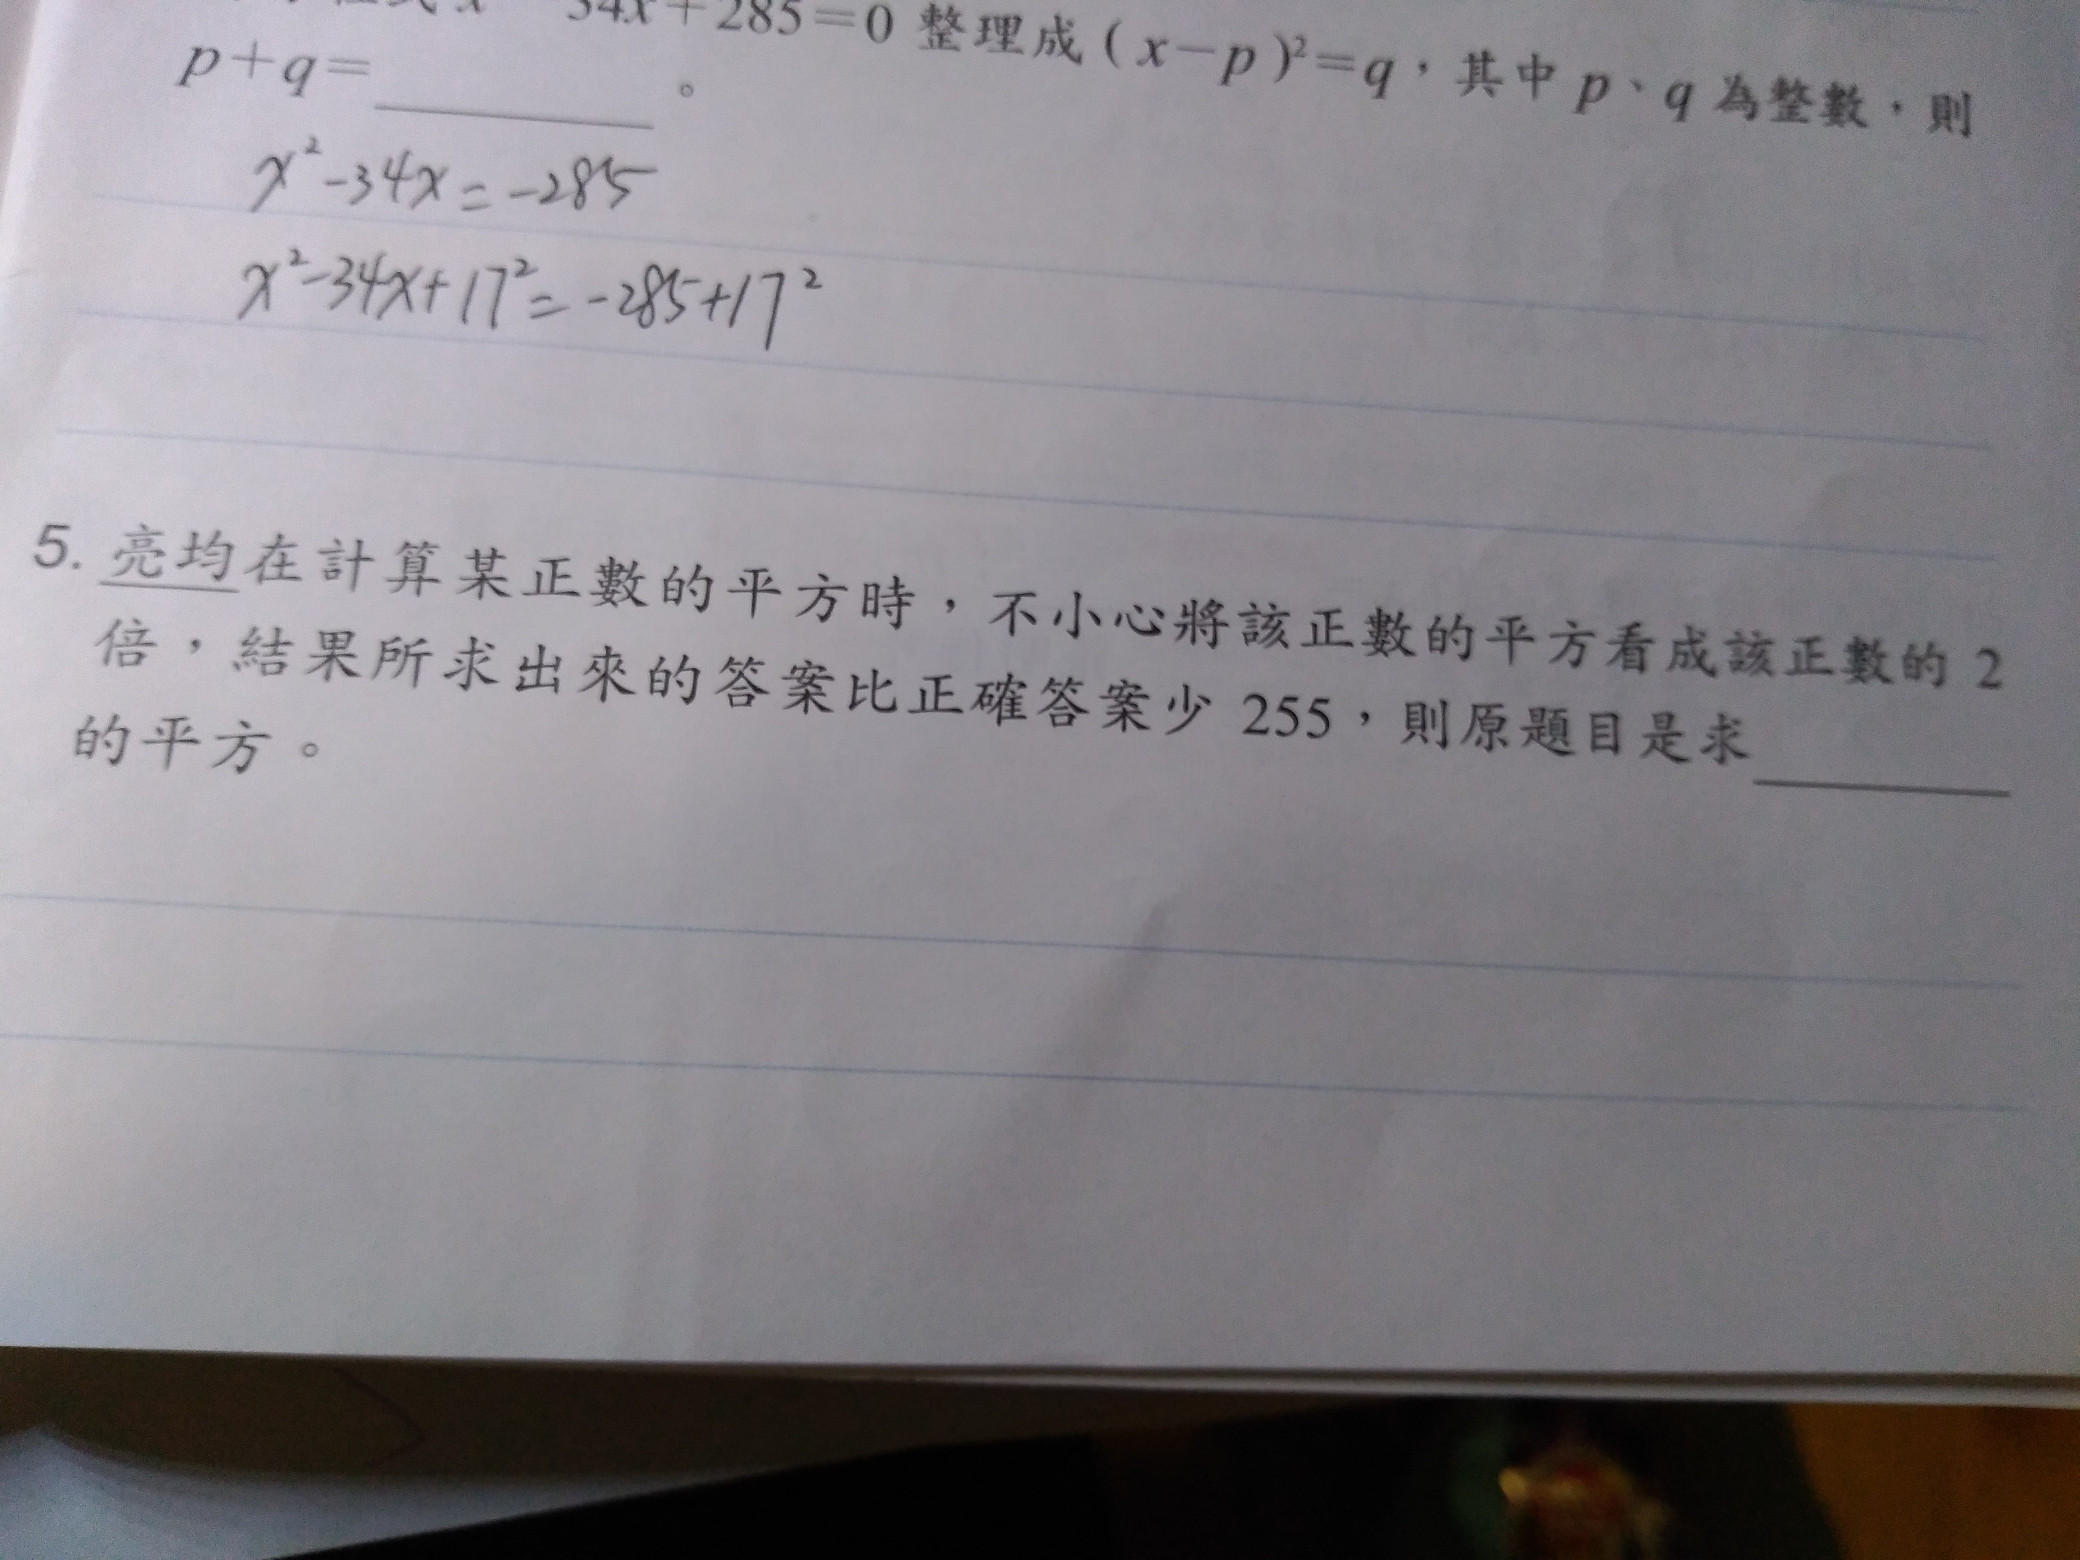 34x+285=0 整理成 (x-p)²=q，其中 p、q 為整數，則
p+q=＿＿＿＿。
x²-34x=-285
x²-34x+17²=-285+17²
5. 亮均在計算某正數的平方時，不小心將該正數的平方看成該正數的 2
倍，結果所求出來的答案比正確答案少 255，則原題目是求＿＿＿＿
的平方。